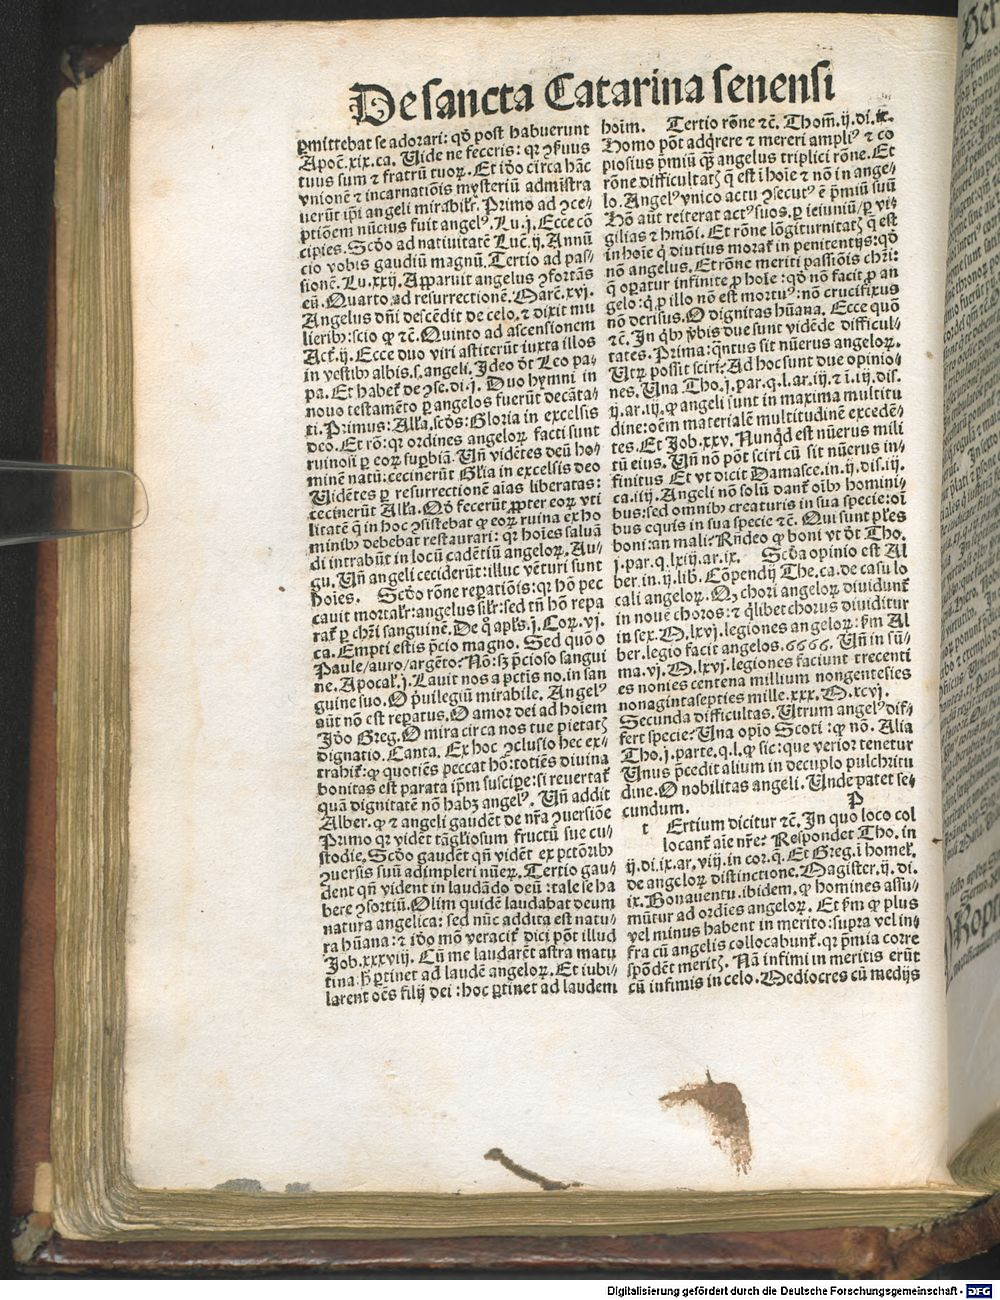 De sancta Catarina senensi
ꝑmittebat se adorari: qđ post habuerunt
Apoc̄.xix.ca. Uide ne feceris: qꝛ ꝯẜuus
tuus sum ⁊ fratrū tuoꝝ. Et iđo circa hāc
vnionē ⁊ incarnatiōis mysteriū admīstra
uerūt ip̄i angeli mirabilr̄. Primo ad ꝯce-
ptiōem nūcius fuit angelꝰ. Lu.j. Ecce cō
cipies. Scđo ad natiuitatē Luc̄.ij. Annū
cio vobis gaudiū magnū. Tertio ad pas-
sionē. Lu.xxij. Apparuit angelus ꝯfortās
eū. Quarto ad resurrectionē. Marc̄.xvi.
Angelus dn̄i descēdit de celo, ⁊ dixit mu
lierib: scio ꝙ ⁊c̄. Quinto ad ascensionem
Act̄.ij. Ecce duo viri astiterūt iuxta illos
in vestib albis.s.angeli. Ideo đt Leo pa-
pa. Et habet̄ de ꝯse.di.j. Duo hymni in
nouo testamēto ꝑ angelos fuerūt decāta-
ti. Primus: Alľa. scđs: Gloria in excelsis
deo. Et rō: qꝛ ordines angeloꝝ facti sunt
ruinosi ꝑ eoꝝ suꝑbiā. Un̄ vidētes deū ho-
minē natū: cecinerūt Gľia in excelsis deo
Uidētes ꝑ resurrectionē aīas liberatas:
cecinerūt Alľa. Qđ fecerūt ꝓpter eoꝝ vti
litatē q̄ in hoc ꝯsistebat ꝙ eoꝝ ruina ex ho
minib debebat restaurari: qꝛ hoīes saluā
di intrabūt in locū cadētiū angeloꝝ. Au-
gu. Un̄ angeli ceciderūt: illuc vēturi sunt
hoīes. Scđo rōne reꝑatiōis: qꝛ hō pec
cauit mortalr̄: angelus silr̄: sed tn̄ hō repa
rat̄ ꝑ chr̄i sanguinē. De q̊ apľs.j. Coꝝ.vj.
ca. Empti estis p̄cio magno. Sed quō o
Paule/auro/argēto? Nō: sꝫ p̄cioso sangui
ne. Apocal̄.j. Lauit nos a pctīs no. in san
guine suo. O p̄uilegiū mirabile. Angelꝰ
aūt nō est reꝑatus. O amor dei ad hoīem
Iđo Greg. O mira circa nos tue pietatꝭ
dignatio. Canta. Ex hoc ꝯclusio hec ex-
trahit̄: ꝙ quotiēs peccat hō: totiēs diuina
bonitas est parata ip̄m suscipe: si reuertat̄
quā dignitatē nō habꝫ angelꝰ. Un̄ addit
Alber. ꝙ ⁊ angeli gaudēt de nr̄a ꝯuersiōe
Primo qꝛ vidēt tā gľiosum fructū sue cu-
stodie. Scđo gaudēt qn̄ vidēt ex pctōrib
ꝯuersis suū adimpleri nūeꝝ. Tertio gau-
dent qn̄ vident in laudādo deū: tale se ha
bere ꝯsortiū. Olim quidē laudabat deum
natura angelica: sed nūc addita est natu-
ra hūana: ⁊ iđo mō veracit̄ dici pōt illud
Job.xxxviij. Cū me laudarēt astra matu
tina. ꝑtinet ad laudē angeloꝝ. Et iubi-
larent oēs filij dei: hoc ꝑtinet ad laudem
hoīm. Tertio rōne ⁊c̄. Thom̄.ij.di.ix.
Homo pōt adq̄rere ⁊ mereri ampliꝰ ⁊ co
piosius p̄miū q̄ꝫ angelus triplici rōne. Et
rōne difficultatꝭ q̄ est ī hoīe ⁊ nō in ange-
lo. Angelꝰ vnico actu ꝯsecutꝰ ē p̄miū suū
Hō aūt reiterat actꝰ suos. ꝑ ieiuniū/ꝑ vi-
gilias ⁊ hmōi. Et rōne lōgiturnitatꝭ q̄ est
in hoīe q̇ diutius morat̄ in penitentijs: qđ
nō angelus. Et rōne meriti passiōis chr̄i:
q̄ oꝑatur infinite ꝓ hoīe: qđ nō facit ꝓ an
gelo: q̇ ꝓ illo nō est mortuꝰ: nō crucifixus
nō derisus. O dignitas hūana. Ecce quō
⁊c̄. In q̇b v̄bis due sunt vidēde difficul-
tates. Prima: q̄ntus sit nūerus angeloꝝ.
Utꝝ possit sciri? Ad hoc sunt due opinio-
nes. Una Tho.j.par.q.l.ar.iij. ⁊ ī.iij.dis.
ij.ar.iij. ꝙ angeli sunt in maxima multitu
dine: oēm materialē multitudinē excedē-
tes. Et Job.xxv. Nunq̄d est nūerus mili
tū eius. Un̄ nō pōt sciri cū sit nūerus in-
finitus Et vt dicit Damasce.in.ij.dis.iij.
ca.iiij. Angeli nō solū dant̄ oīb homini-
bus: sed omnib creaturis in sua specie: oī
bus equis in sua specie ⁊c̄. Qui sunt pľes
boni: an mali? Rn̄deo ꝙ boni vt đt Tho.
j.par.q.lxiij.ar.ix. Scđa opinio est Al
ber.in.ij.lib. Cōpendij The.ca.de casu lo
cali angeloꝝ. Qꝫ chori angeloꝝ diuidunt̄
in noue choros: ⁊ q̇libet chorus diuiditur
in sex.M.lxvj.legiones angeloꝝ: ẜm Al
ber. legio facit angelos.6666. Un̄ in sū-
ma.vi.M.lxvj.legiones faciunt trecenti
es nonies centena millium nongentesies
nonagintasepties mille.xxx.M.xcvj.
Secunda difficultas. Utrum angelꝰ dif-
fert specie? Una opīo Scoti: ꝙ nō. Alia
Tho.j.parte.q.l. ꝙ sic: que verioꝛ tenetur
Unus p̄cedit alium in decuplo pulchritu
dine. O nobilitas angeli. Unde patet se-
cundum. P
t Ertium dicitur ⁊c̄. In quo loco col
locant̄ aīe nr̄e? Respondet Tho. in
ij.di.ix.ar.viij.in cor.q. Et Greg.ī homel̄.
de angeloꝝ distinctione. Magister.ij.di.
ix. Bonauentu.ibidem. ꝙ homines assu-
mūtur ad ordīes angeloꝝ. Et ẜm ꝙ plus
vel minus habent in merito: supra vel in-
fra cū angelis collocabunt̄. qꝛ p̄mia corre
spōdēt meritꝭ. Nā infimi in meritis erūt
cū infimis in celo. Mediocres cū medijs
Digitalisierung gefördert durch die Deutsche Forschungsgemeinschaft - DFG